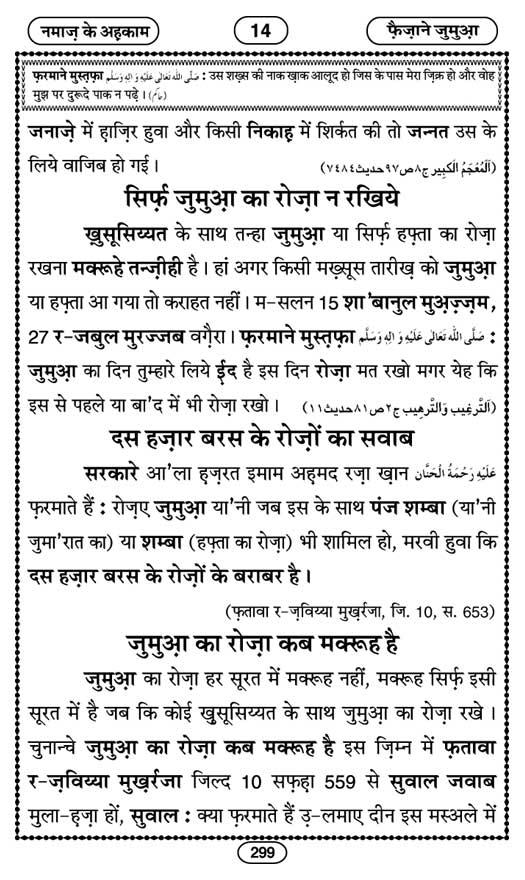 नमाज़ के अहकाम
14
फ़ैज़ाने जुमुआ़
फ़रमाने मुस्त़फ़ा صَلَّى اللّٰه تَعَالٰى عَلَيْهِ وَ اٰلِهٖ وَسَلَّم : उस शख़्स की नाक ख़ाक आलूद हो जिस के पास मेरा ज़िक्र हो और वोह
मुझ पर दुरूदे पाक न पढ़े । (حاکم)
जनाज़े में ह़ाज़िर हुवा और किसी निकाह़ में शिर्कत की तो जन्नत उस के
लिये वाजिब हो गई । (اَلْمُعْجَمُ الْكبِير ج٨ص٩٧حديث٧٤٨٤)
सिर्फ़ जुमुआ़ का रोज़ा न रखिये
ख़ुसूसिय्यत के साथ तन्हा जुमुआ़ या सिर्फ़ हफ़्ता का रोज़ा
रखना मक्रूहे तन्ज़ीही है । हां अगर किसी मख़्सूस तारीख़ को जुमुआ़
या हफ़्ता आ गया तो कराहत नहीं । म-सलन 15 शा'बानुल मुअ़ज़्ज़म,
27 र-जबुल मुरज्जब वग़ैरा । फ़रमाने मुस्त़फ़ा صَلَّى اللّٰه تَعَالٰى عَلَيْهِ وَ اٰلِهٖ وَسَلَّم :
जुमुआ़ का दिन तुम्हारे लिये ई़द है इस दिन रोज़ा मत रखो मगर येह कि
इस से पहले या बा'द में भी रोज़ा रखो । (اَلتَّرغِيب وَالتَّرهِيب ج٢ص٨١حديث١١)
दस हज़ार बरस के रोज़ों का सवाब
सरकारे आ'ला ह़ज़रत इमाम अह़मद रज़ा ख़ान عَلَيْهِ رَحْمَةُ الْحَنَّان
फ़रमाते हैं : रोज़ए जुमुआ़ या'नी जब इस के साथ पंज शम्बा (या'नी
जुमा'रात का) या शम्बा (हफ़्ता का रोज़ा) भी शामिल हो, मरवी हुवा कि
दस हज़ार बरस के रोज़ों के बराबर है ।
(फ़तावा र-ज़विय्या मुख़र्रजा, जि. 10, स. 653)
जुमुआ़ का रोज़ा कब मक्रूह है
जुमुआ़ का रोज़ा हर सूरत में मक्रूह नहीं, मक्रूह सिर्फ़ इसी
सूरत में है जब कि कोई ख़ुसूसिय्यत के साथ जुमुआ़ का रोज़ा रखे ।
चुनान्चे जुमुआ़ का रोज़ा कब मक्रूह है इस ज़िम्न में फ़तावा
र-ज़विय्या मुख़र्रजा जिल्द 10 सफ़ह़ा 559 से सुवाल जवाब
मुला-ह़ज़ा हों, सुवाल : क्या फ़रमाते हैं उ़-लमाए दीन इस मस्अले में
299